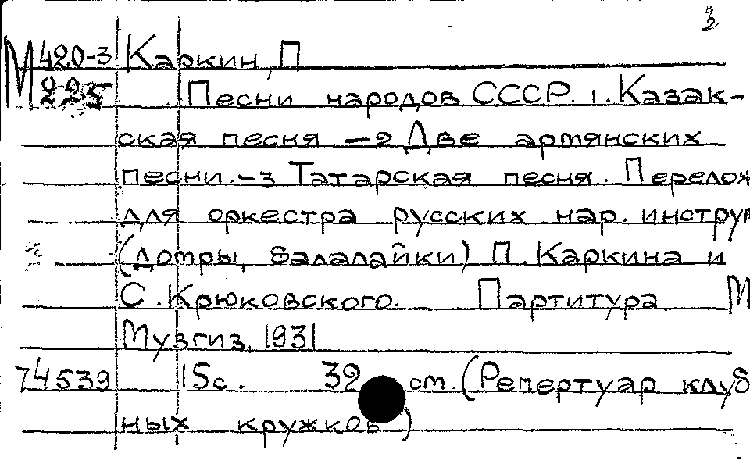 2
М 420-3 Каркин, П
225 Песни народов СССР. 1. Казак-
ская песня —2 Две армянских
песни.-3 Татарская песня. Перелож
для оркестра русских нар. инструм
(домры, балалайки) П. Каркина и
С. Крюковского. Партитура М
Музгиз, 1931
74539 15с. 32 см. (Репертуар клуб
ных кружков)